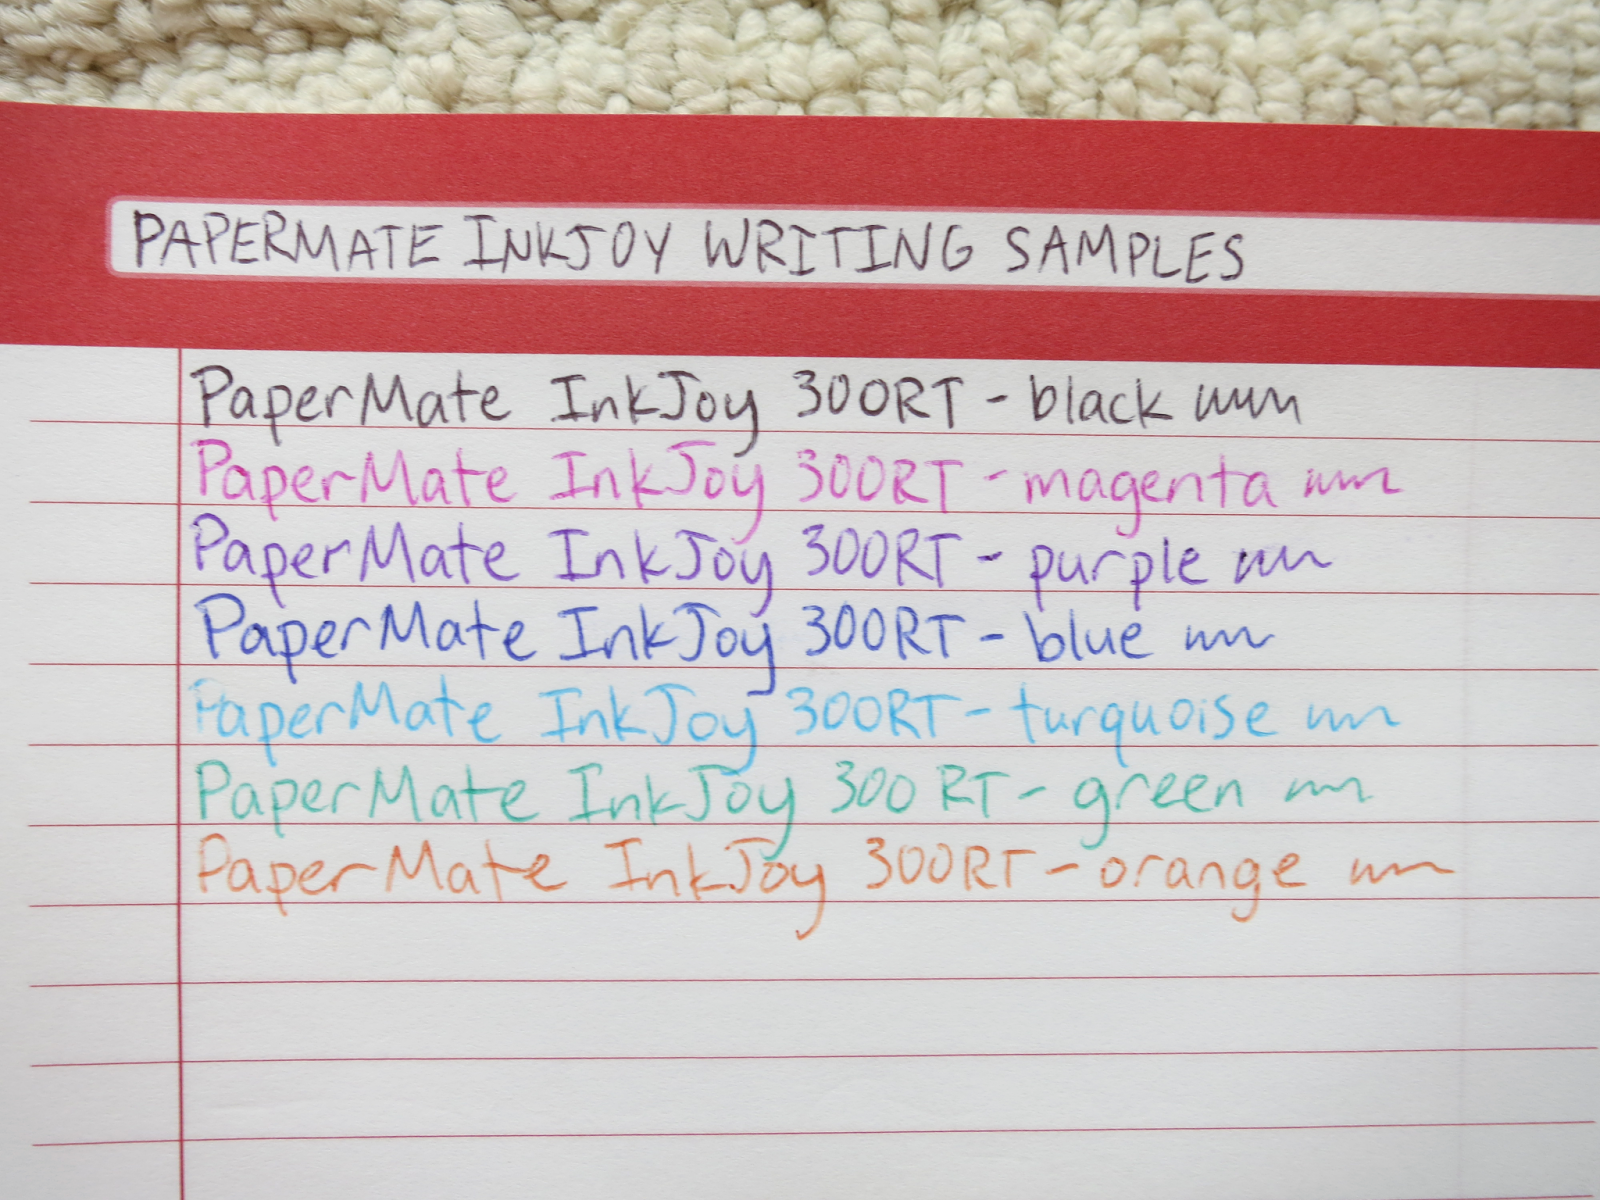 PAPERMATE INKJOY WRITING SAMPLES
PaperMate InkJoy 300RT - black
PaperMate InkJoy 300RT - magenta
PaperMate InkJoy 300RT - purple
PaperMate InkJoy 300RT - blue
PaperMate InkJoy 300RT - turquoise
PaperMate InkJoy 300RT - green
PaperMate InkJoy 300RT - orange